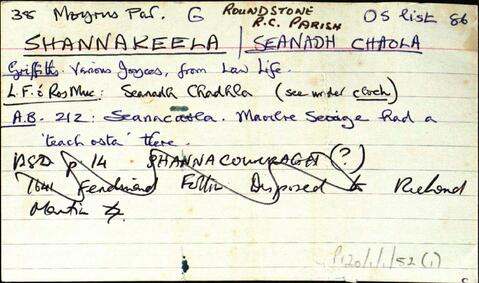 38 Moyrus Par. G ROUNDSTONE R.C. PARISH OS list 86
SHANNAKEELA / SEANADH CHAOLA
Griffith. Various Joyces, from Law Life.
L.F. ó Ros Muc: Seanadh Chadhla (see under cloch)
A.B. 212: Seannacaela. Mairtre Seoige had a
'teach ósta' there.
BSD p 14 SHANNACOUERAGH (?)
1641 Ferdinand Disposed to Richard
Martin
P120/1/1/52(1)